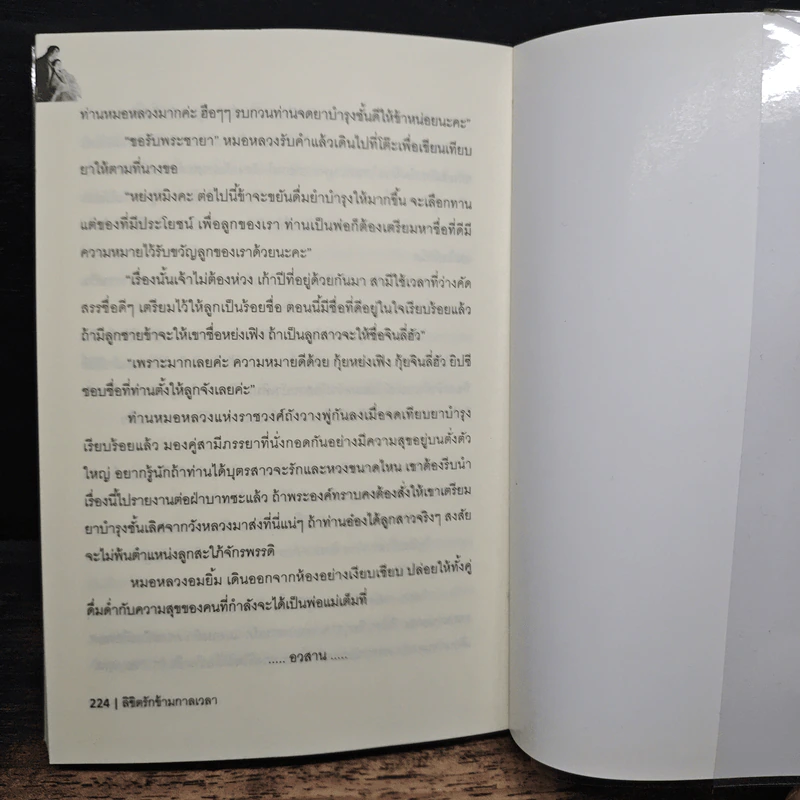 ท่านหมอหลวงมากค่ะ ฮือๆๆ รบกวนท่านจดยาบำรุงชั้นดีให้ข้าหน่อยนะคะ"
"ขอรับพระชายา" หมอหลวงรับคำแล้วเดินไปที่โต๊ะเพื่อเขียนเทียบ
ยาให้ตามที่นางขอ
"หย่งหมิงคะ ต่อไปนี้ข้าจะขยันดื่มยำบำรุงให้มากขึ้น จะเลือกทาน
แต่ของที่มีประโยชน์ เพื่อลูกของเรา ท่านเป็นพ่อก็ต้องเตรียมหาชื่อที่ดีมี
ความหมายไว้รับขวัญลูกของเราด้วยนะคะ"
"เรื่องนั้นเจ้าไม่ต้องห่วง เก้าปีที่อยู่ด้วยกันมา สามีใช้เวลาที่ว่างคัด
สรรชื่อดีๆ เตรียมไว้ให้ลูกเป็นร้อยชื่อ ตอนนี้มีชื่อที่ดีอยู่ในใจเรียบร้อยแล้ว
ถ้ามีลูกชายข้าจะให้เขาชื่อหย่งเฟิง ถ้าเป็นลูกสาวจะให้ชื่อจินลี่ฮัว"
"เพราะมากเลยค่ะ ความหมายดีด้วย กุ้ยหย่งเฟิง กุ้ยจินลี่ฮัว ยิปซี
ชอบชื่อที่ท่านตั้งให้ลูกจังเลยค่ะ"
ท่านหมอหลวงแห่งราชวงศ์ถังวางพู่กันลงเมื่อจดเทียบยาบำรุง
เรียบร้อยแล้ว มองคู่สามีภรรยาที่นั่งกอดกันอย่างมีความสุขอยู่บนตั่งตัว
ใหญ่ อยากรู้นักถ้าท่านได้บุตรสาวจะรักและหวงขนาดไหน เขาต้องรีบนำ
เรื่องนี้ไปรายงานต่อฝ่าบาทซะแล้ว ถ้าพระองค์ทราบคงต้องสั่งให้เขาเตรียม
ยาบำรุงชั้นเลิศจากวังหลวงมาส่งที่นี่แน่ๆ ถ้าท่านอ๋องได้ลูกสาวจริงๆ สงสัย
จะไม่พ้นตำแหน่งลูกสะใภ้จักรพรรดิ
หมอหลวงอมยิ้ม เดินออกจากห้องอย่างเงียบเชียบ ปล่อยให้ทั้งคู่
ดื่มด่ำกับความสุขของคนที่กำลังจะได้เป็นพ่อแม่เต็มที่
..... อวสาน .....
224 | ลิขิตรักข้ามกาลเวลา